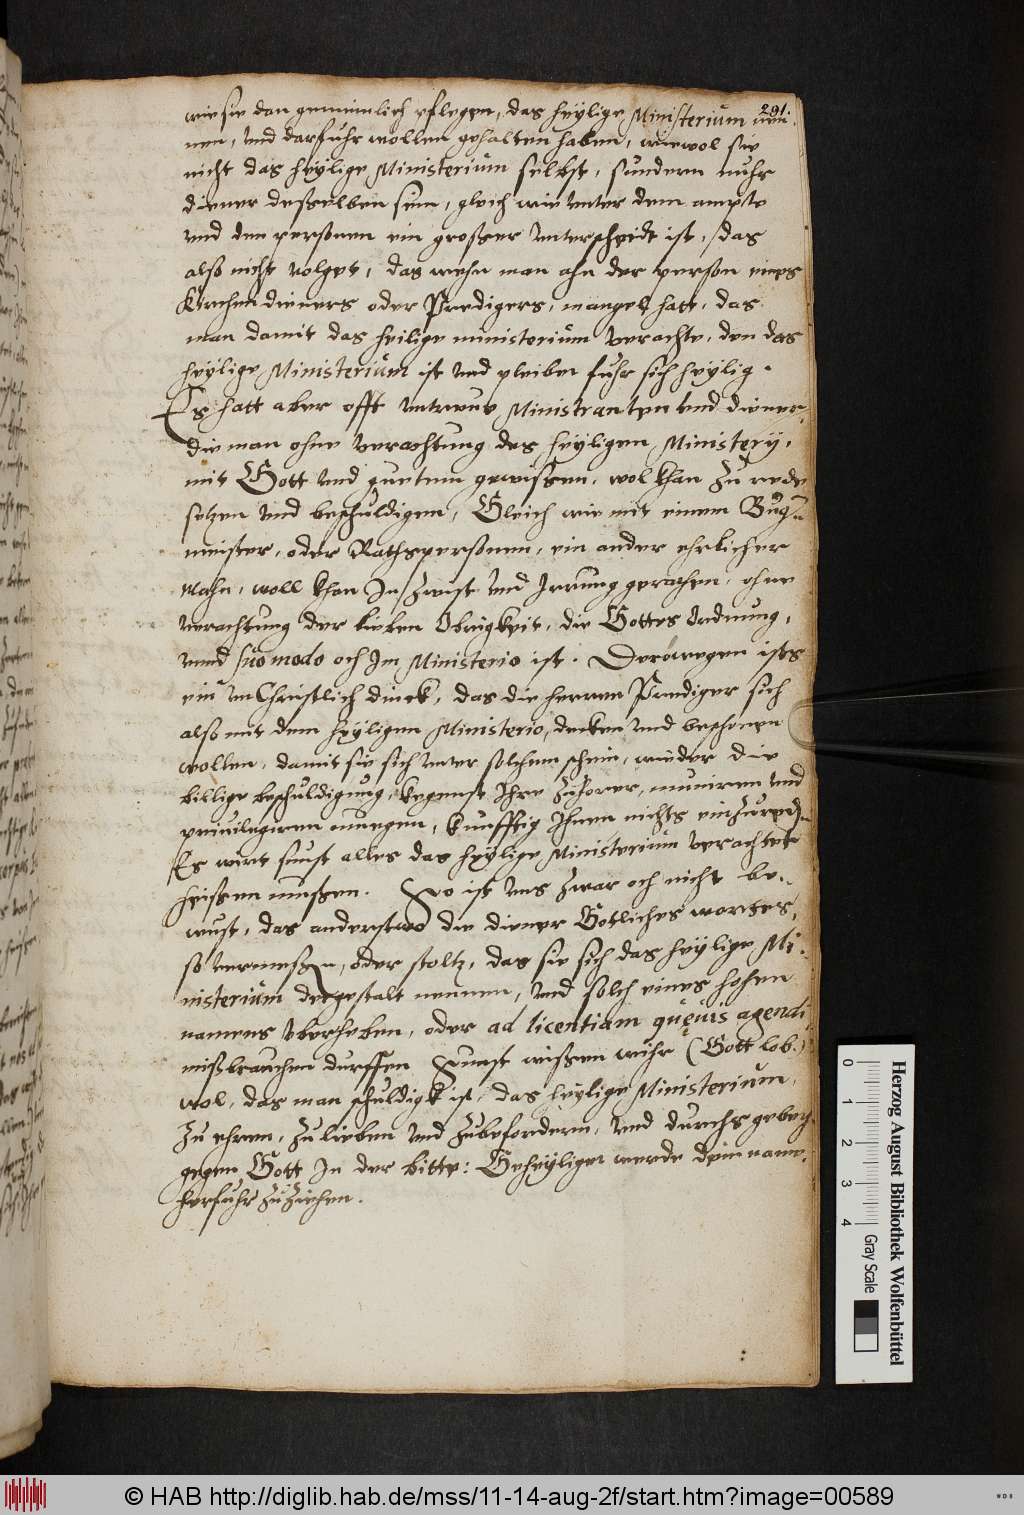 291.
wie sie dan gemeinlich pflegen, das heylige Ministerium nen-
nen, und darfuhr wollen gehalten haben, wiewol sie
nicht das heylige Ministerium selbst, sundern nuhr
diener desselben sein, gleich wie unter dem ampte
und den personen ein grosser unterscheidt ist, das
also nicht volget, das wehn man ahn der person eines
Kirchendieners oder Predigers, mangel hatt, das
man damit das heilige ministerium verachte, den das
heylige Ministerium ist und pleibet fuhr sich heylig.
Es hatt aber offt untreue Ministranten und diener,
die man ohne verachtung des heyligen Ministery,
mit Gott und guetem gewissen, wol khan zu rede
setzen und beschuldigen, Gleich wie mit einem Burger
meister, oder Rathspersonen, ein ander ehrlicher
Mahn, woll khan In Zwist und Irrung gerathen, ohne
verachtung der lieben Obrigkeit, die Gottes Ordnung,
unnd suo modo och Im Ministerio ist. Derowegen ists
ein unChristlich dinck, das die herren Prediger sich
also mit dem heyligen Ministerio, decken und beschonen
wollen, damit sie sich unter solchem schein, wieder die
billige beschuldigung, kegenst Ihre Zuhorer, muniren und
privilegiren muegen, kunfftig Ihnen nichts einZureden
Es wirt sunst alles das heylige Ministerium verachtet
heissen mussen. So ist uns Zwar och nicht be-
wust, das anderstwo die diener Gotliches wortes,
so vermessen, oder stoltz, das sie sich das heylige Mi-
nisterium dergestalt nennen, und solch eines hohen
namens uberheben, oder ad licentiam quevis agendi
missbrauchen durffen Sunst wissen wuhr (Gott lob)
wol, das man schuldigk ist, das heylige Ministerium,
Zu ehren, Zu lieben und Zubefordern, und durchs gebet
gegen Gott In der bitte: Geheyliget werde dein name,
herfuhr Zu Ziehen.
Herzog August Bibliothek Wolfenbüttel
0 1 2 3 4
Gray Scale
© HAB http://diglib.hab.de/mss/11-14-aug-2f/start.htm?image=00589